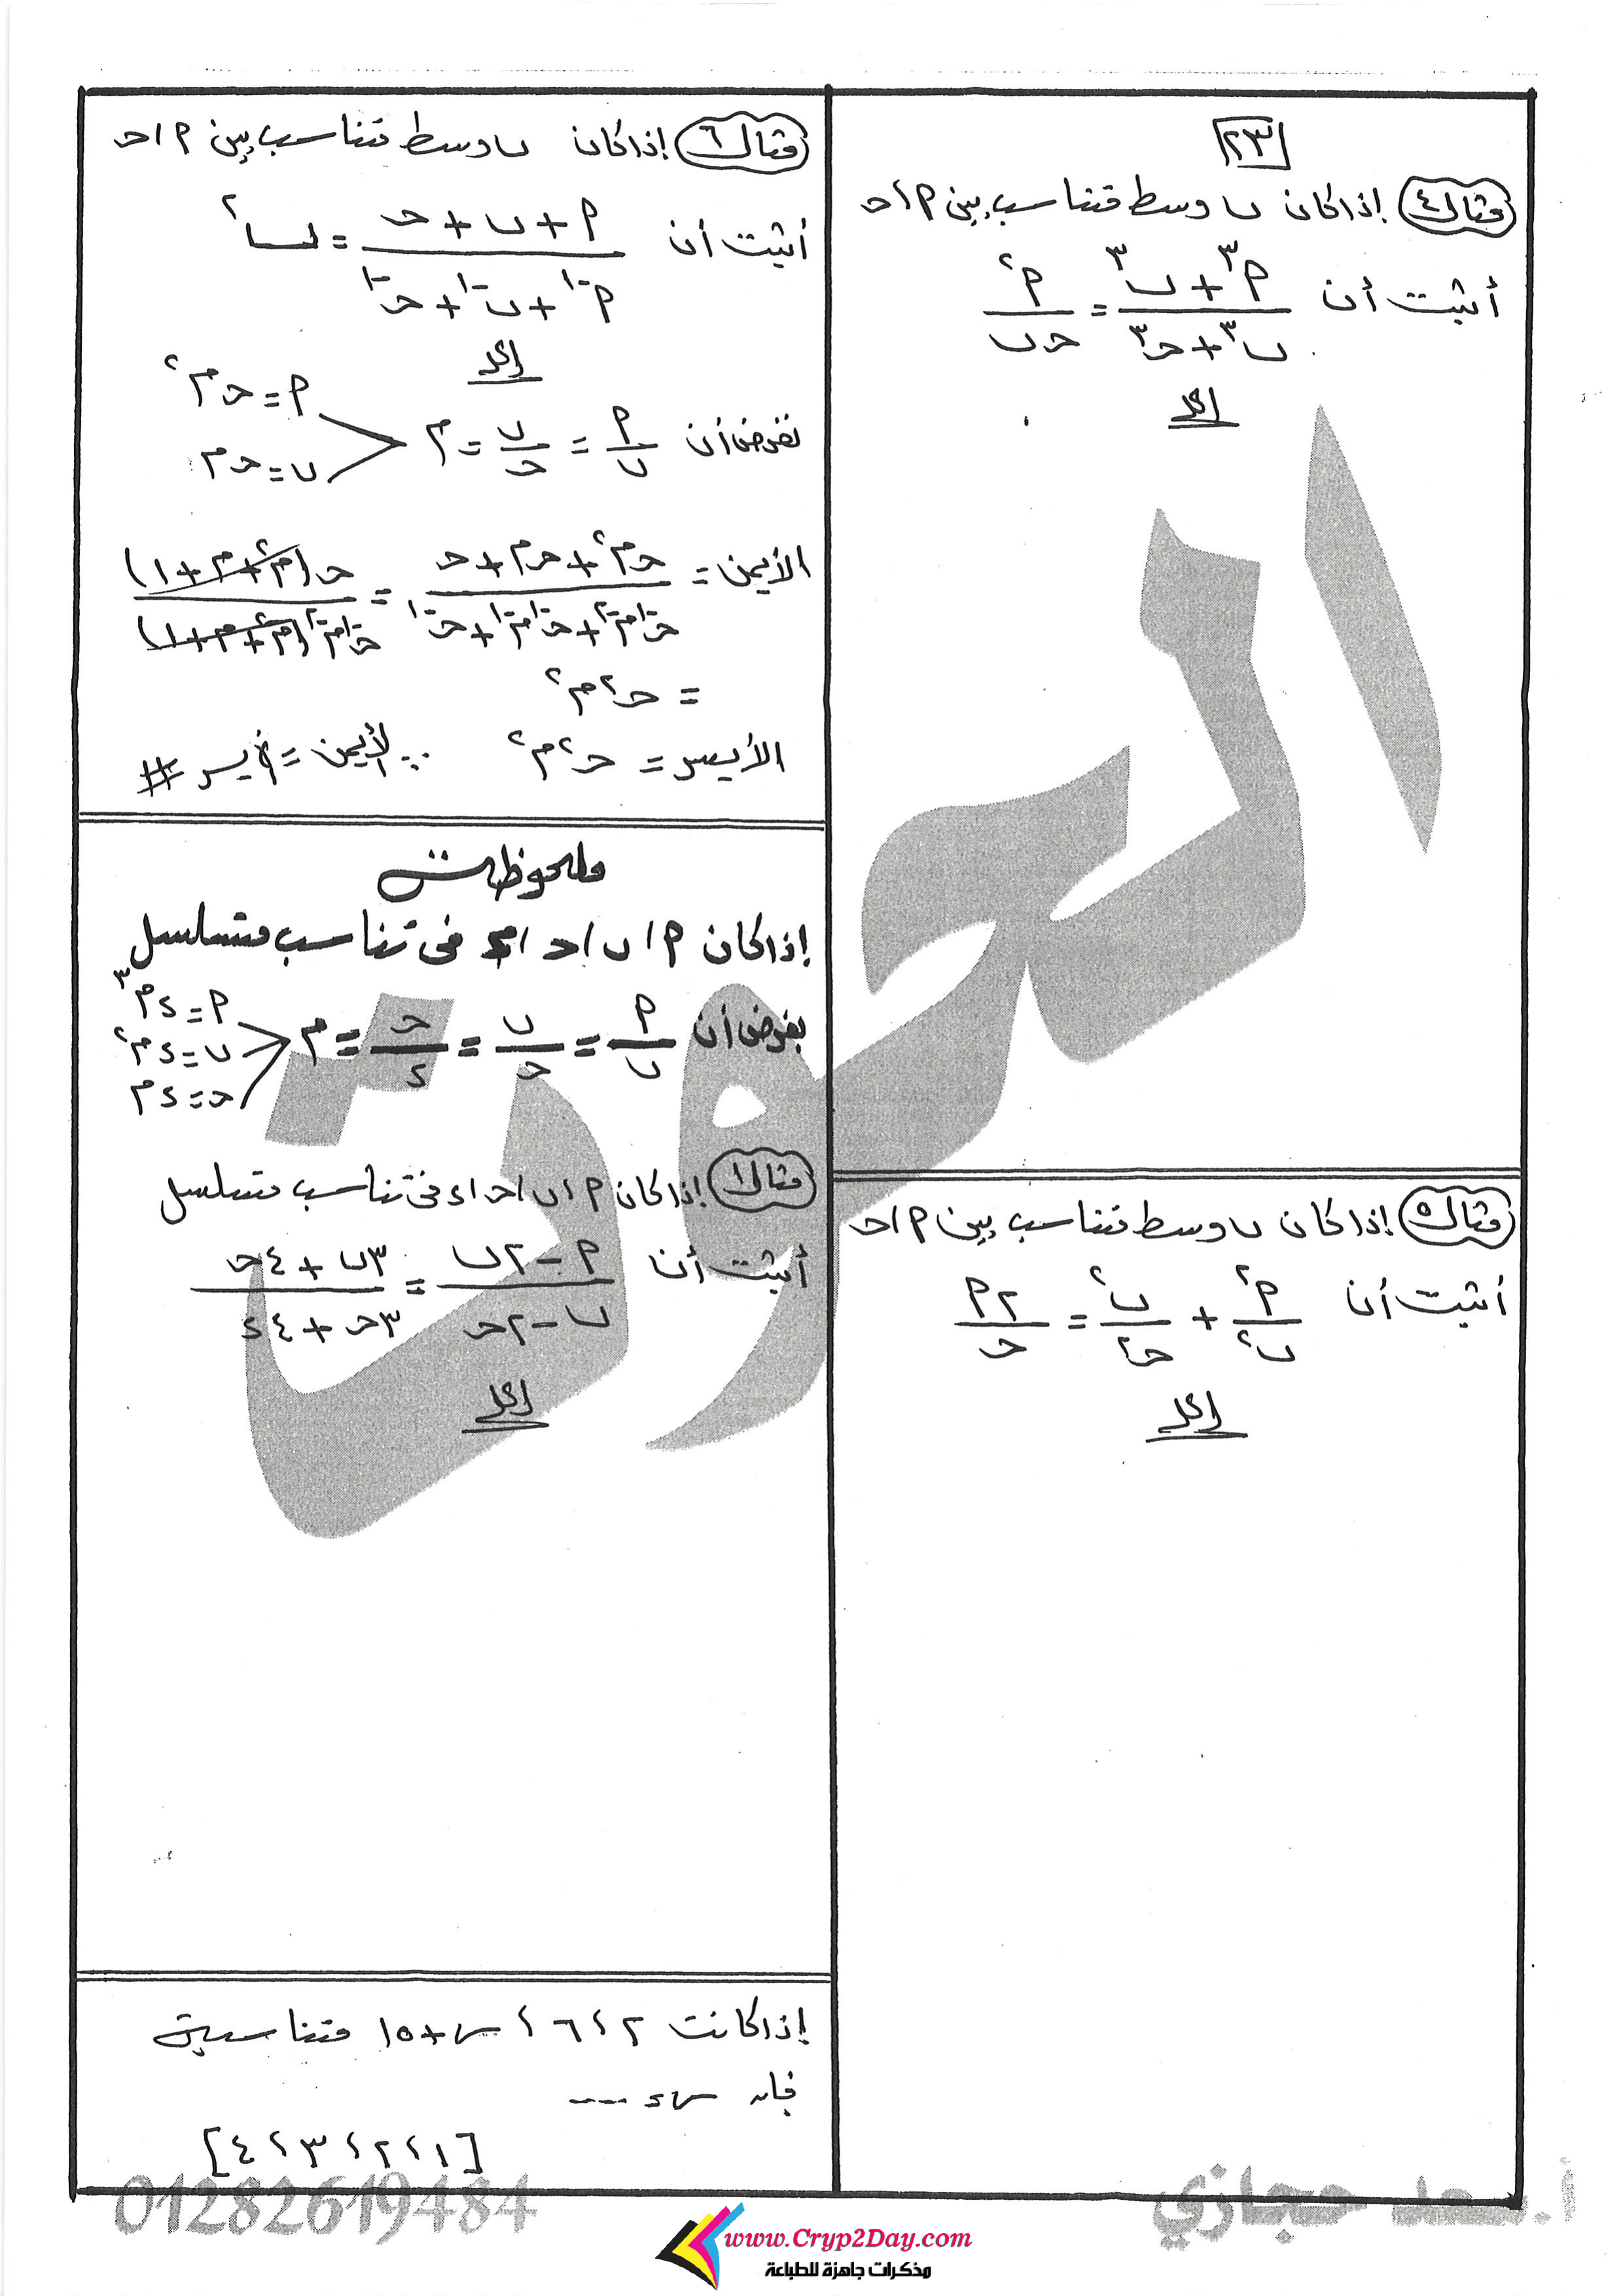 ٢٣
مثال ٤ إذا كان ب وسط متناسب بين م، ح
أثبت أن (م³ + ب³) / (ب³ + ح³) = م² / ح ب
الحل
مثال ٥ إذا كان ب وسط متناسب بين م، ح
أثبت أن م² / ب² + ب² / ح² = ٢م / ح
الحل
مثال ٦ إذا كان ب وسط متناسب بين م، ح
أثبت أن (م + ب + ح) / (م⁻¹ + ب⁻¹ + ح⁻¹) = ب²
الحل
نفرض أن م / ب = ب / ح = م
م = ح م²
ب = ح م
الأيمن = (ح م² + ح م + ح) / (ح⁻¹ م⁻² + ح⁻¹ م⁻¹ + ح⁻¹) = ح (م² + م + ١) / ح⁻¹ م⁻² (م² + م + ١)
= ح² م²
الأيسر = ح² م² ∴ الأيمن = الأيسر #
ملحوظات
إذا كان م، ب، ح، ء فى تناسب متسلسل
بفرض أن م / ب = ب / ح = ح / ء = م
م = ء م³
ب = ء م²
ح = ء م
مثال ١ إذا كان م، ب، ح، ء فى تناسب متسلسل
أثبت أن (م − ٢ب) / (ب − ٢ح) = (٣ب + ٤ح) / (٣ح + ٤ء)
الحل
إذا كانت ٢، ٦، س + ١٥ متناسبة
فإن س = ----
[١، ٢، ٣، ٤]
أ. سعد حجازي
01282619484
www.Cryp2Day.com
مذكرات جاهزة للطباعة